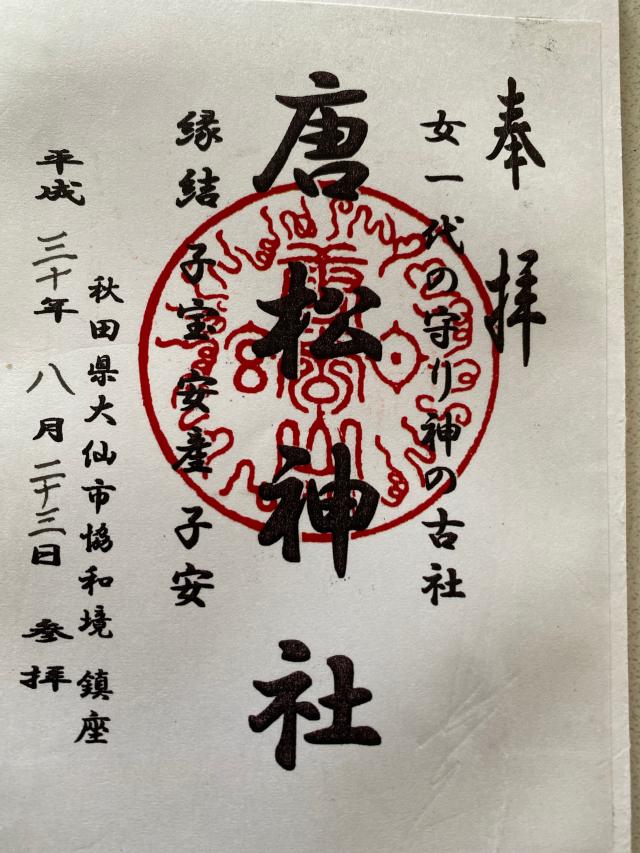 奉拝
女一代の守り神の古社
唐松神社
縁結 子宝 安産 子安
秋田県大仙市協和境 鎮座
平成三十年 八月二十三日 参拝